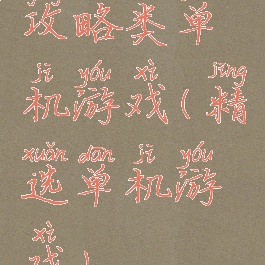 攻略类单
jī yóu xì jīng
机游戏(精
xuǎn dān jī yóu
选单机游
xì
戏)